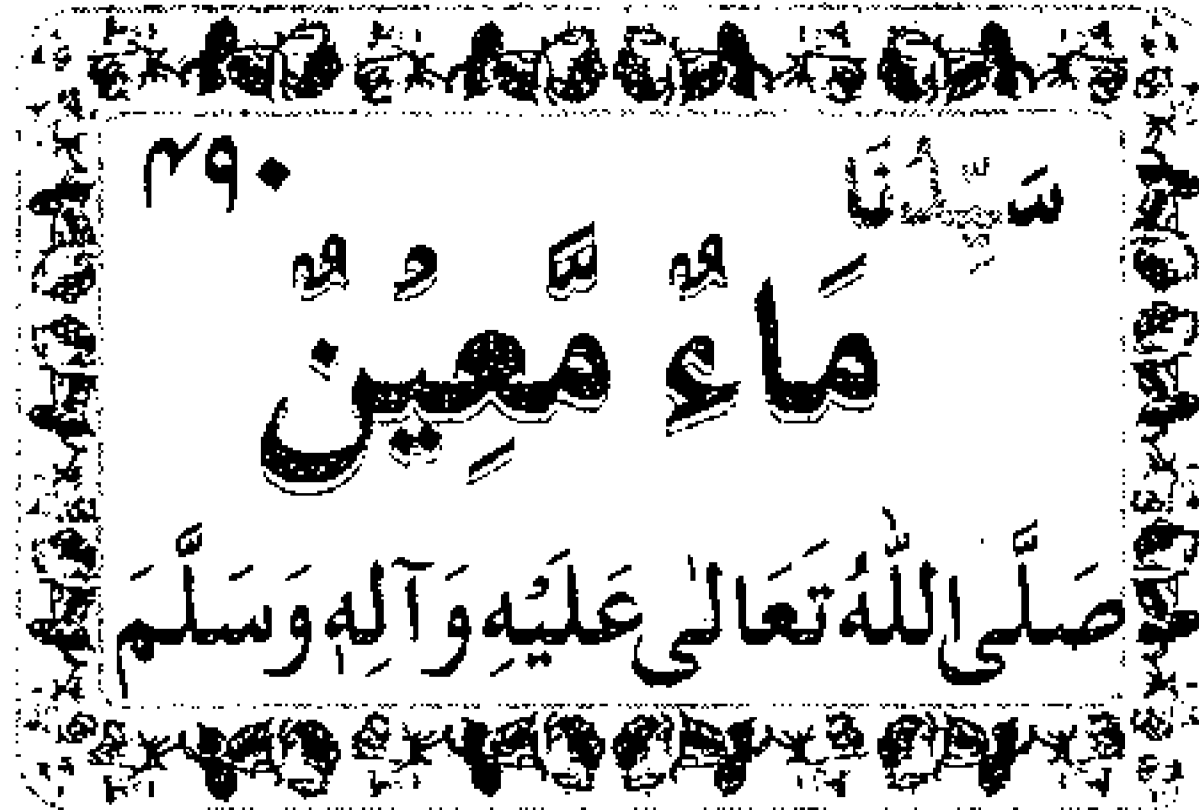 سَيِّدُنَا ۴۹۰
مَاءٌ مَّعِيْنٌ
صَلَّى اللّٰهُ تَعَالٰى عَلَيْهِ وَآلِهٖ وَسَلَّمَ